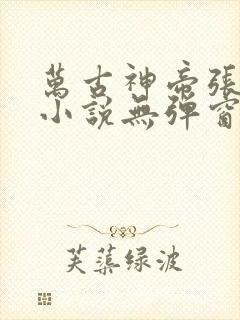 萬古神帝張
小說無彈窗
芙蕖绿波